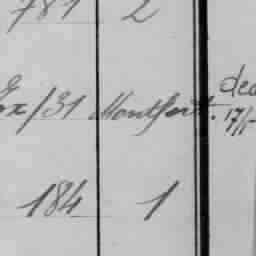 781 2
Ex/31 Montfort. dec
17/
184 1